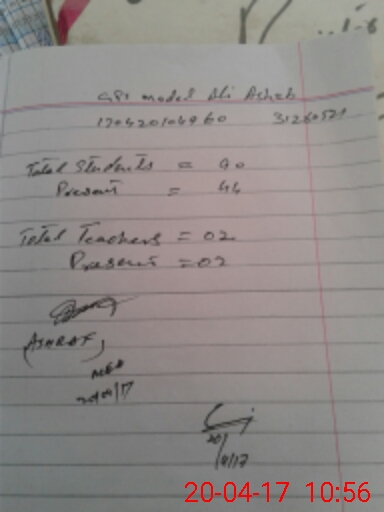 GPS model Ali Ashab
170420104960 31260521
Total Students = 90
Present = 44
Total Teachers = 02
Present = 02
(ASHRAF)
20/04/17
20/
4/17
20-04-17 10:56